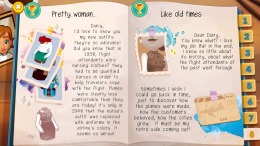 Pretty woman...
Diary,
I'd love to show you
my new outfits.
They're so adorable!
Did you know that in
1938, flight
attendants wore
nursing clothes? They
had to be qualified
nurses in order to
help travelers cope
with the flight. Planes
were clearly less
comfortable than they
are today! It's only in
1948 that the nurses'
outfit was replaced
with uniforms in the
airline's colors. It
became so
Like old times
Dear Diary,
You know what? I love
my job. But in the end,
I know so little about
the flight attendants of
the past I went through
Sometimes I wish I
could go back in time,
just to discover how
the planes were made,
how the customers
behaved, how the cities
grew. It must be my
retro side coming out!
1
2
3
4
5
6
7
8